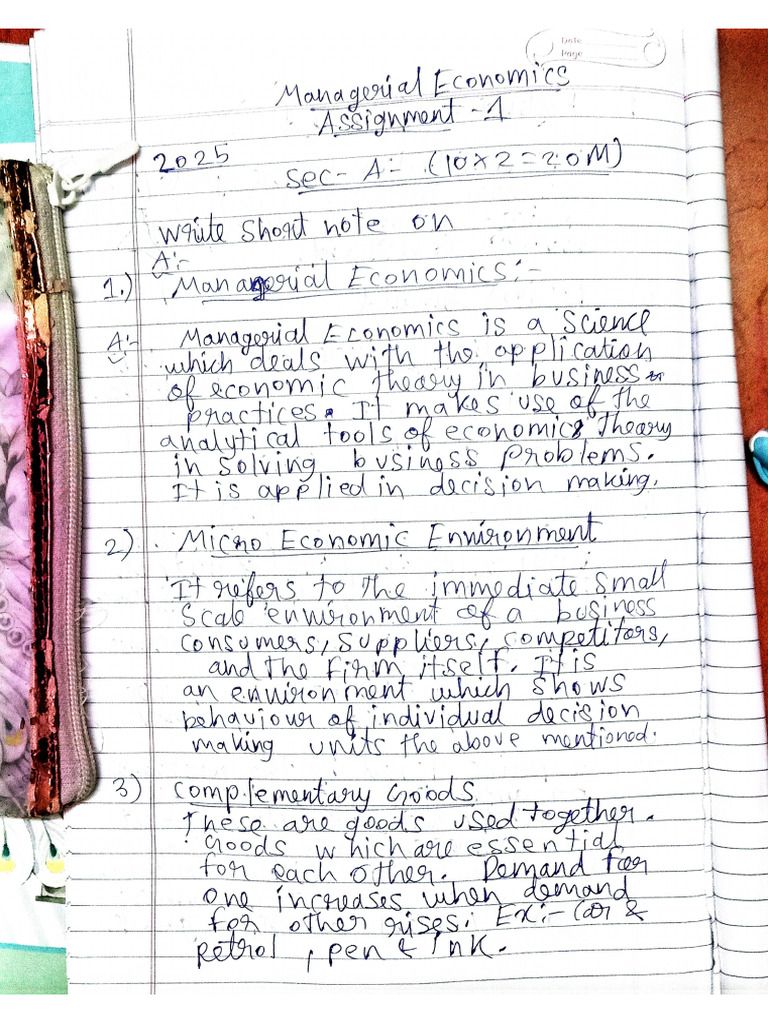 Date
Page
Managerial Economics
Assignment - 1
2025
Sec - A :- (10 x 2 = 20M)
Write short note on
A:-
1.) Managerial Economics :-
A:- Managerial Economics is a Science
which deals with the application
of economic theory in business
practices. It makes use of the
analytical tools of economics theory
in solving business problems.
It is applied in decision making.
2) . Micro Economic Environment
It refers to the immediate small
scale environment of a business
consumers, suppliers, competitors,
and the firm itself. It is
an environment which shows
behaviour of individual decision
making units the above mentioned.
3) Complementary Goods
These are goods used together.
Goods which are essential
for each other. Demand for
one increases when demand
for other rises. Ex:- Car &
Petrol , pen & Ink.